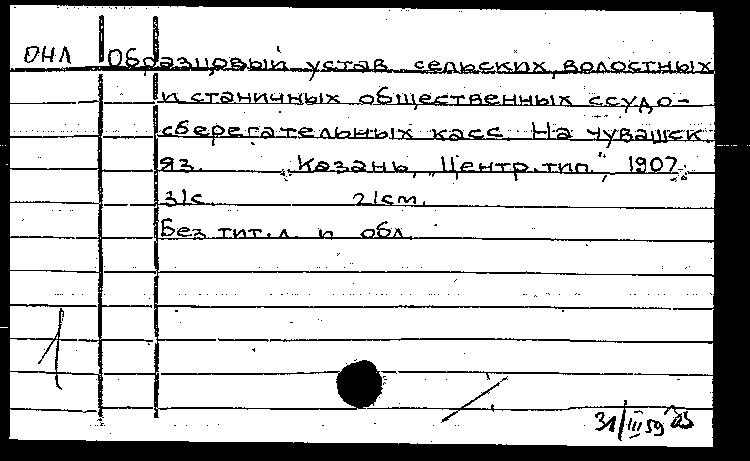 ОНЛ Образцовый устав сельских, волостных
и станичных общественных ссудо-
сберегательных касс. На чувашск.
яз. Казань, "Центр. тип.", 1907.
31с. 21см.
Без тит.л. и обл.
1
31/III 59